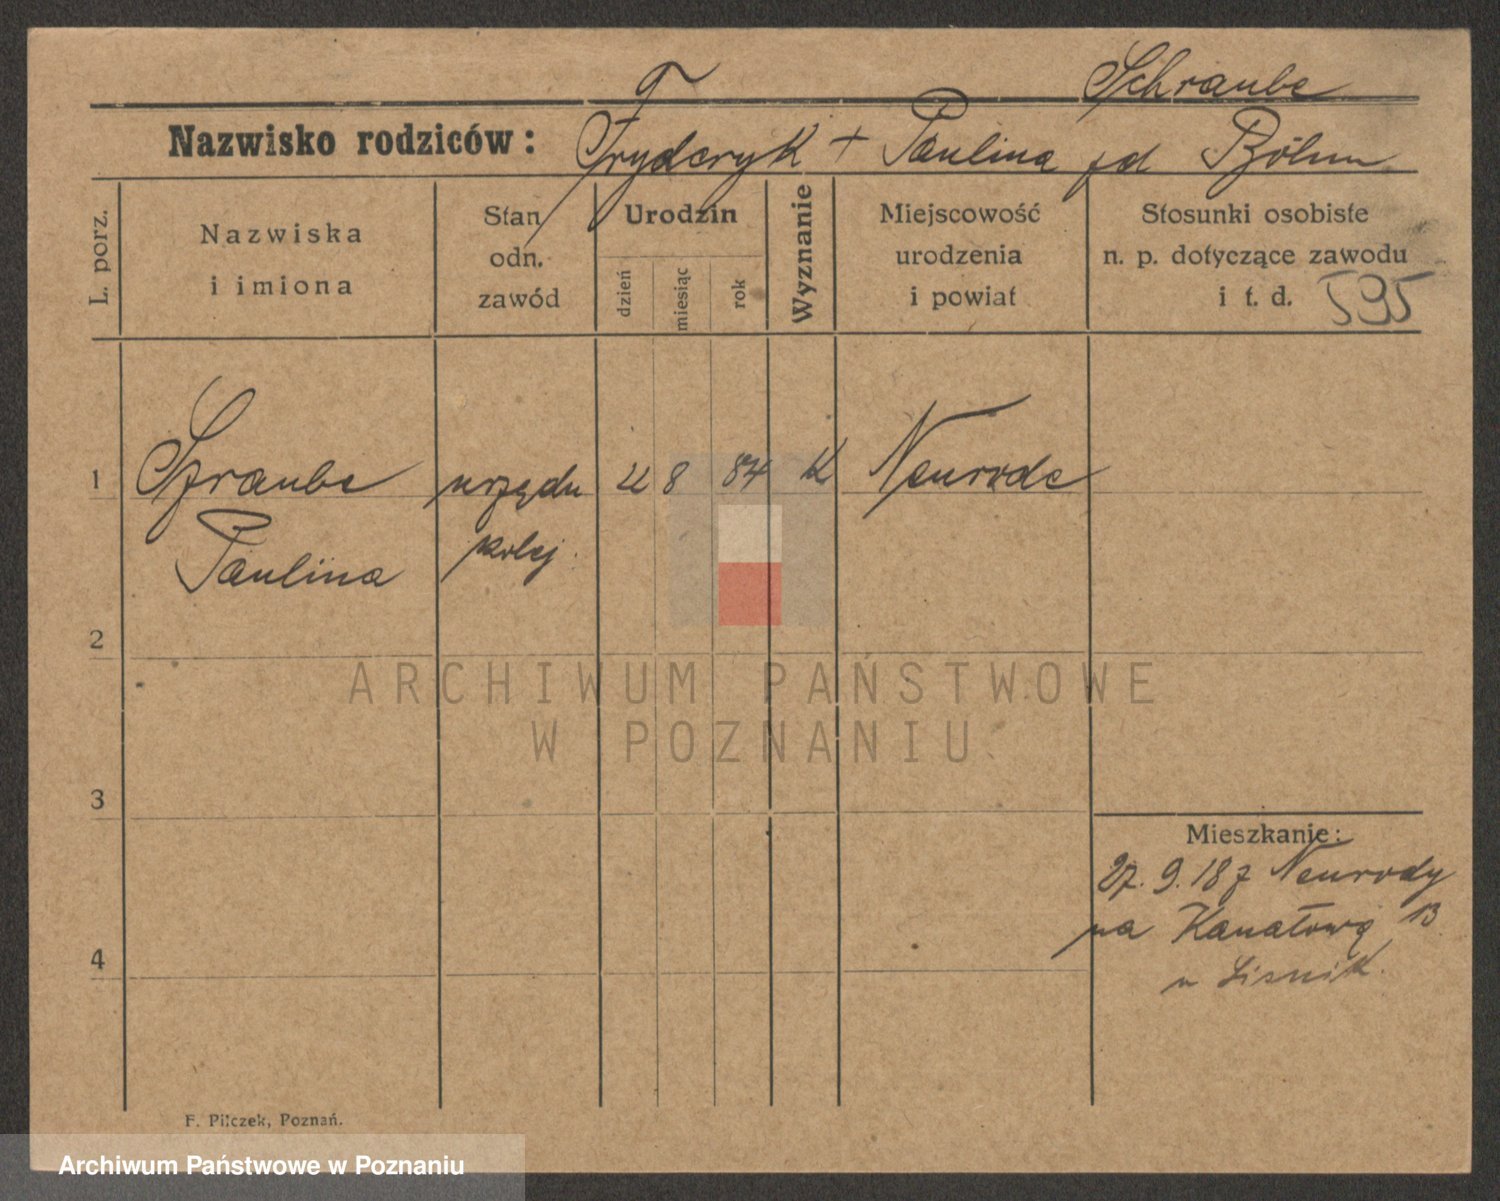 Schraube
Nazwisko rodziców: Fryderyk + Paulina fd Böhm
L. porz.
Nazwiska
i imiona
Stan
odn.
zawód
Urodzin
dzień
miesiąc
rok
Wyznanie
Miejscowość
urodzenia
i powiat
Stosunki osobiste
n. p. dotyczące zawodu
i t. d. 595
1 Szraube urzędn 8 84 K Neurode
Paulina kolej.
2
3
4
Mieszkanie:
27.9.18 z Neurody
na Kanałową 13
u
F. Pilczek, Poznań.
ARCHIWUM PAŃSTWOWE
W POZNANIU
Archiwum Państwowe w Poznaniu